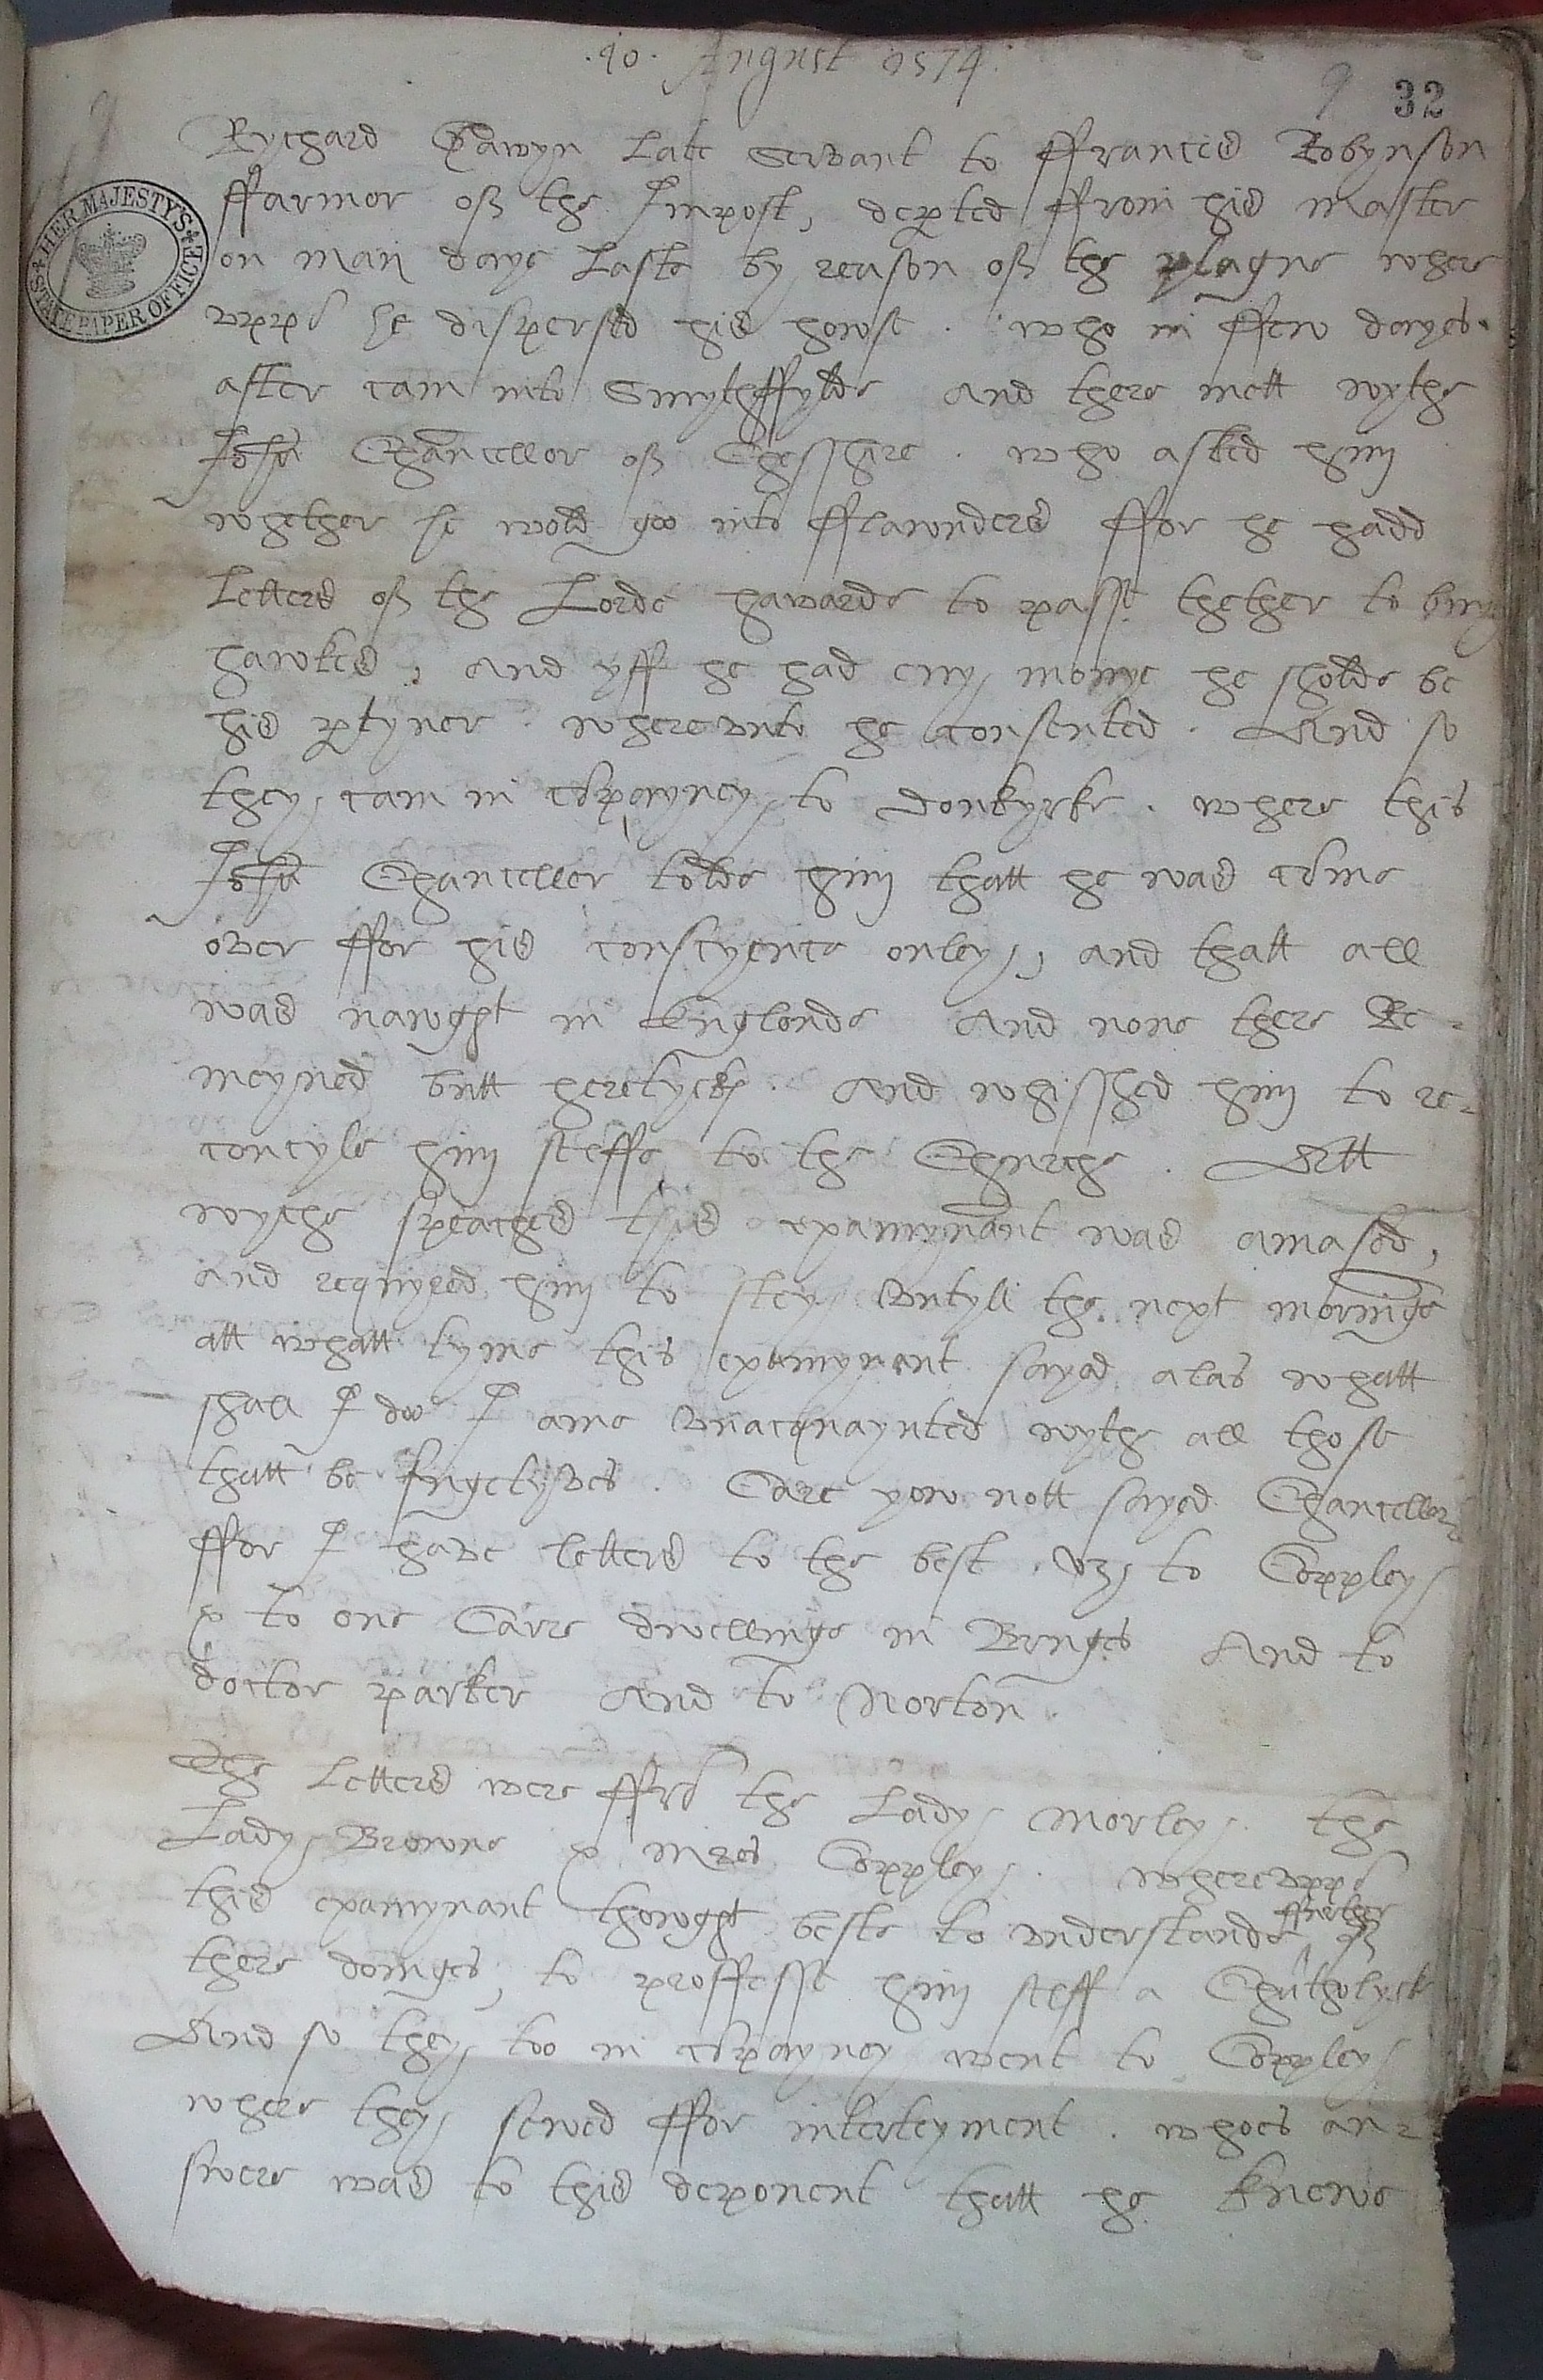 .10. August 1574.
32
Rychard Gawyn late servant to ffrancis Robynson
ffarmor off the Impost, dep̱ted ffrom his master
on maii daye laste by reason off the plague where
vppō he dispersed his howse. who in ffew dayes
after cam into Smythffylde And there mett wythe
Iohn Chancellor off Chesshire. who asked him
whether he wold goo into fflawnders ffor he hadd
letters off the Lorde hawarde to passe thether to buy
hawkes, And yff he had eny monye he sholde be
his p̱tyner. wherevnto he consented. And so
they cam in cōpayney to Donkyrke. where this
Iohn Chanceller tolde him thatt he was come
over ffor his conscyence onley, and thatt all
was nawght in Englonde And none there Re-
meyned butt heretyckes. And whisshed him to re-
concyle him selffe to the Churche. Att
wyche speaches this examynant was amased,
and requyred him to stey vntyll the next morninge
att whatt tyme this examynant sayed alas whatt
shall I doo I ame vnacquaynted wythe all those
thatt be fugetyves. Care yow nott sayed Chanceller
ffor I have letters to the best. vz to Coppley
& to one Carre dwellinge in Bruges And to
doctor parker And to Norton.
The letters were ffrō the Lady Morley. the
Lady Browne & Mres Coppley. wherevppō
this examynant thowght beste to vnderstande ffurther off
there doinges, to proffesse him selff a Catholyck
And so they too in cōpayney went to Coppley
where they sewed ffor interteyment. whoes an-
swere was to this deponent thatt he knewe
HER MAJESTY'S STATE PAPER OFFICE